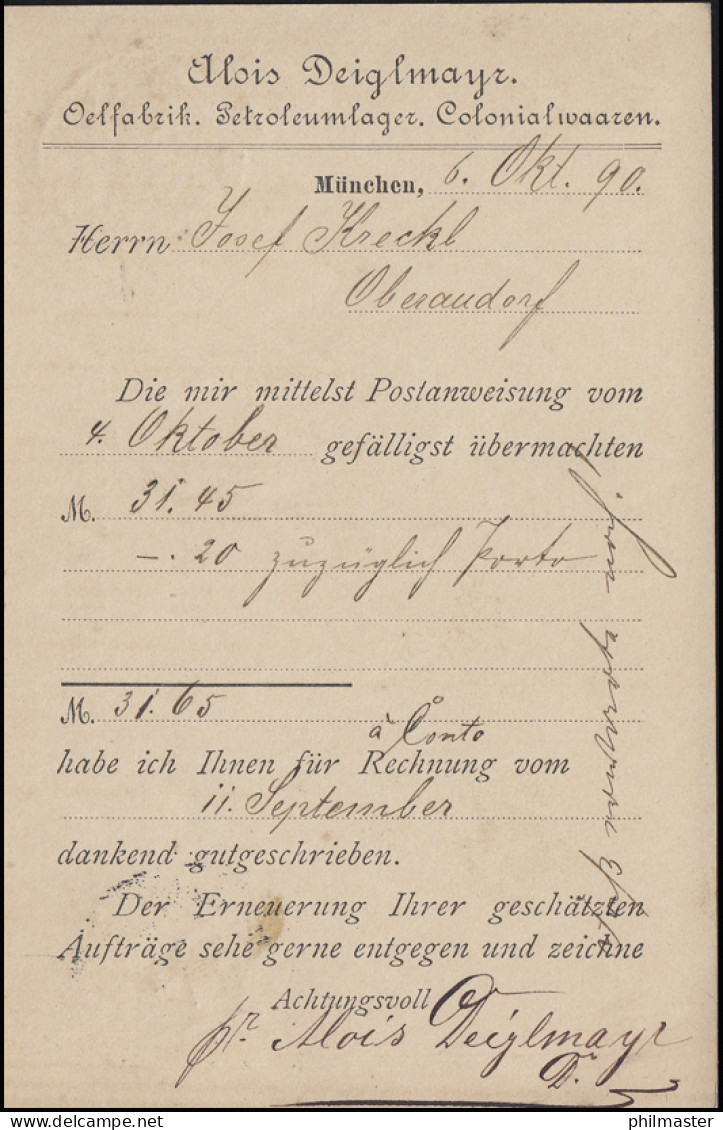 Alois Deiglmayr.
Oelfabrik. Petroleumlager. Colonialwaaren.
München, 6. Okt. 90.
Herrn Josef Kreckl
Oberaudorf
Die mir mittelst Postanweisung vom
4. Oktober gefälligst übermachten
M. 31.45
—.20 zuzüglich Porto
M. 31.65
à Conto
habe ich Ihnen für Rechnung vom
11. September
dankend gutgeschrieben.
Der Erneuerung Ihrer geschätzten
Aufträge sehe gerne entgegen und zeichne
Achtungsvoll
pr Alois Deiglmayr
D.
philmaster